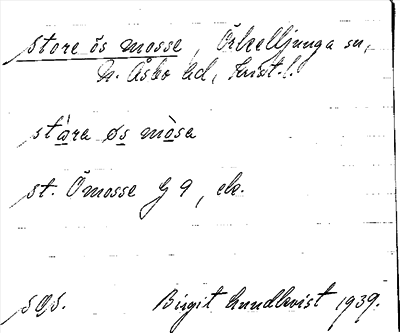 store ös mosse, Örkelljunga sn,
N. Åsbo hd, Krist. l.
stǻra øs mòsa
st. Ömosse G 9, ek.
sqs. Birgit Lundkvist 1939.